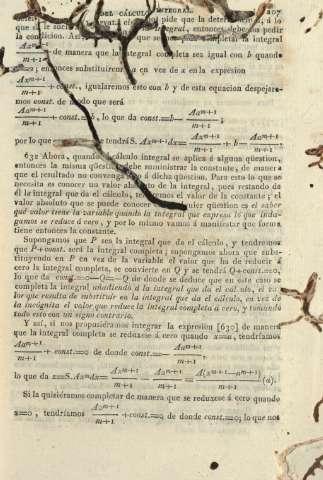 DEL CÁLCULO INTEGRAL. 207
pide que la determinemos, á lo
que se le integral, entonces debe no pedir
la condicion. Así, completar la integral
Aa^{m+1}/m+1 de manera que la integral completa sea igual con b quando
x=a; entonces substituiremos en vez de x en la expresión
Aa^{m+1}/m+1 + const., igualaremos esto con b y de esta equacion despejare-
mos const. de modo que será
Aa^{m+1}/m+1 + const.=b, lo que da const.=b — Aa^{m+1}/m+1;
por lo que tendrá S. Ax^m dx= Ax^{m+1}/m+1 + b — Aa^{m+1}/m+1.
632 Ahora, quando el cálculo integral se aplica á alguna qüestion,
entonces la misma qüestion debe suministrar la constante, de manera
que el resultado no convenga sino á dicha qüestion. Para esto lo que se
necesita es conocer un valor absoluto de la integral, pues restando de
él la integral que da el cálculo, tendremos el valor de la constante; el
valor absoluto que se puede conocer qualquier qüestion es el saber
qué valor tiene la variable quando la integral que expresa lo que inda-
gamos se reduce á cero, y por lo mismo vamos á manifestar que forma
tiene entonces la constante.
Supongamos que P sea la integral que da el cálculo, y tendremos
que P+const. será la integral completa; supongamos ahora que subs-
tituyendo en P en vez de la variable el valor que ha de reducir á
cero la integral completa, se convierte en Q y se tendrá Q+const.=0,
lo que da const.=0—Q=—Q de donde se deduce que en este caso se
completa la integral añadiendo á la integral que da el cálculo, el va-
lor que resulta de substituir en la integral que da el cálculo, en vez de
la incógnita el valor que reduce la integral completa á cero, y tomando
todo esto con un signo contrario.
Y así, si nos propusiéramos integrar la expresión [630] de manera
que la integral completa se reduxese á cero quando x=a, tendríamos
Aa^{m+1}/m+1 + const.=0 de donde const.=— Aa^{m+1}/m+1,
lo que da z=S.Ax^m dx= Ax^{m+1}/m+1 — Aa^{m+1}/m+1 = A(x^{m+1}—a^{m+1})/m+1 (a).
Si la quisiéramos completar de manera que se reduxese á cero quando
x=0, tendríamos A0^{m+1}/m+1 +const.=0; de donde const.=0; lo que nos